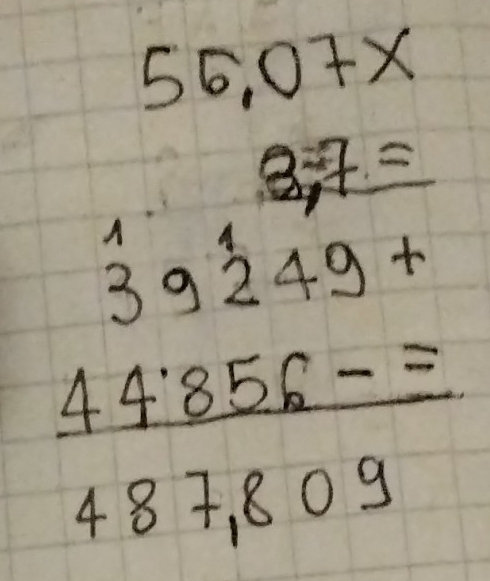 56,07 x
8,7 =
1 1
39249 +
44˙856 - =
487,809